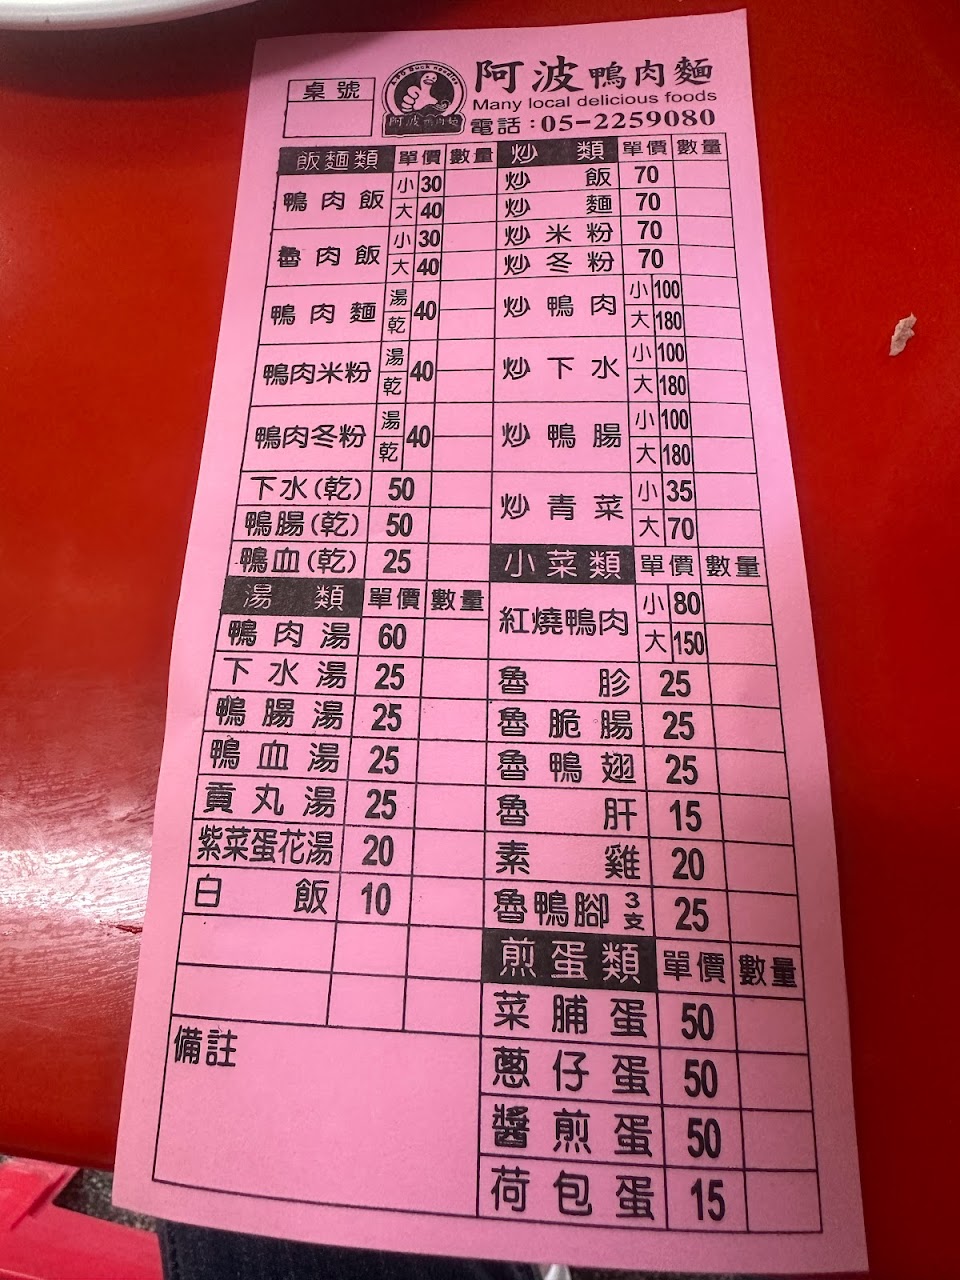 桌號
A PO Duck noodles
阿波鴨肉麵
阿波鴨肉麵
Many local delicious foods
電話:05-2259080
飯麵類 單價 數量
鴨肉飯 小 30
大 40
魯肉飯 小 30
大 40
鴨肉麵 湯 乾 40
鴨肉米粉 湯 乾 40
鴨肉冬粉 湯 乾 40
下水(乾) 50
鴨腸(乾) 50
鴨血(乾) 25
湯類 單價 數量
鴨肉湯 60
下水湯 25
鴨腸湯 25
鴨血湯 25
貢丸湯 25
紫菜蛋花湯 20
白飯 10
備註
炒類 單價 數量
炒飯 70
炒麵 70
炒米粉 70
炒冬粉 70
炒鴨肉 小 100
大 180
炒下水 小 100
大 180
炒鴨腸 小 100
大 180
炒青菜 小 35
大 70
小菜類 單價 數量
紅燒鴨肉 小 80
大 150
魯胗 25
魯脆腸 25
魯鴨翅 25
魯肝 15
素雞 20
魯鴨腳 3支 25
煎蛋類 單價 數量
菜脯蛋 50
蔥仔蛋 50
醬煎蛋 50
荷包蛋 15